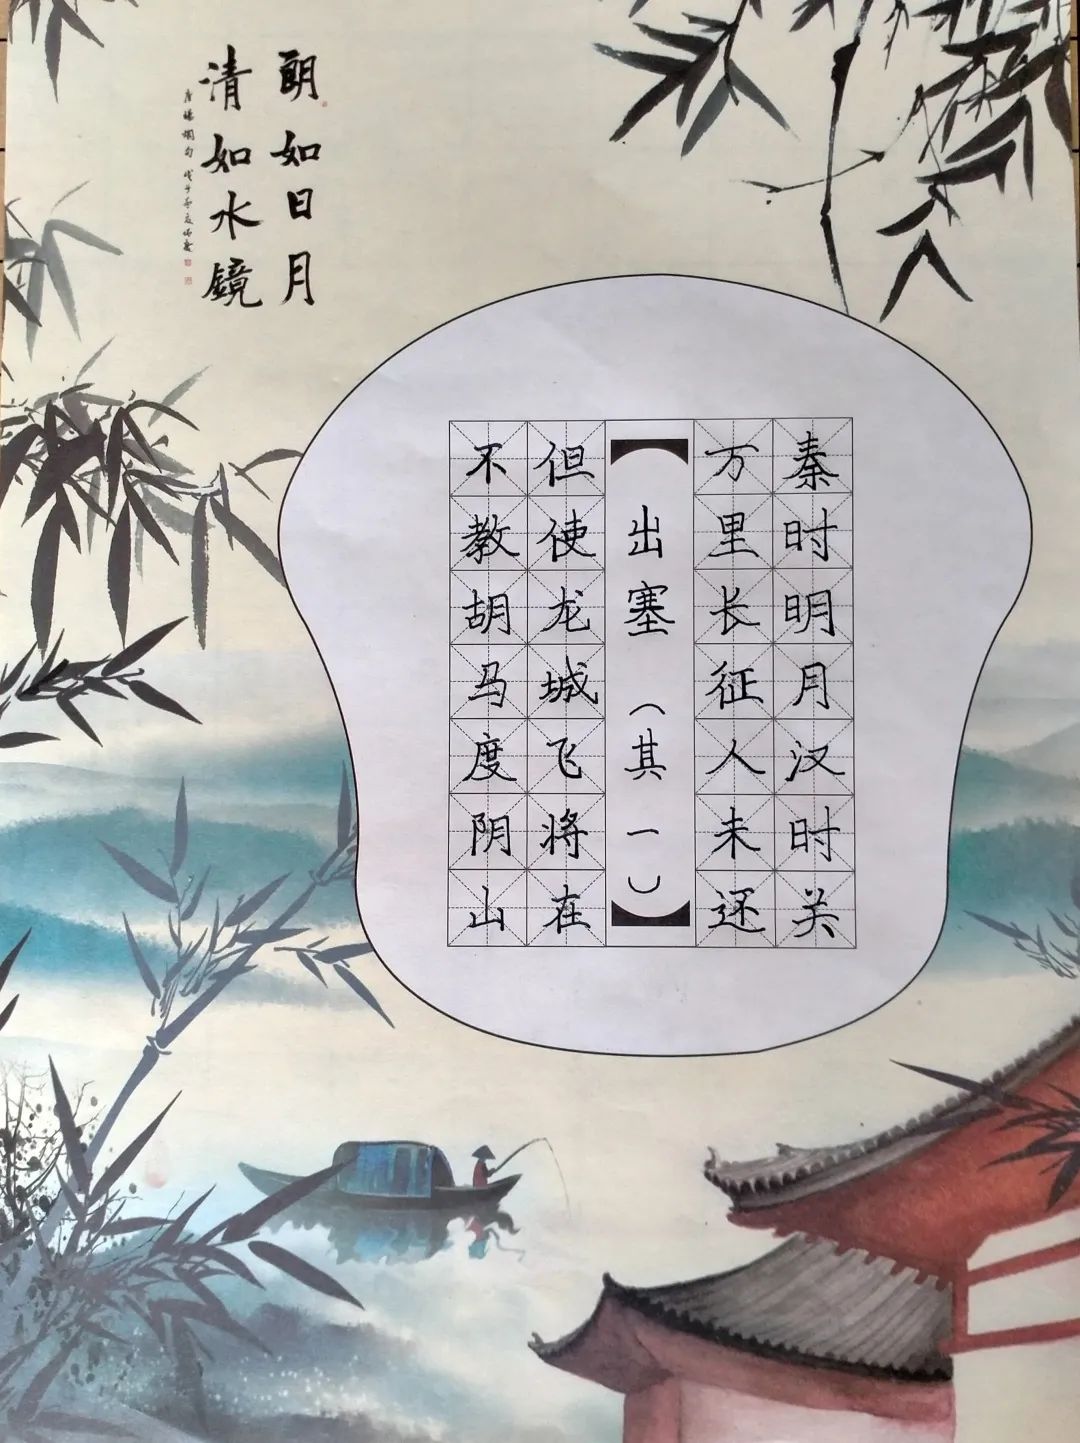 朗如日月
清如水鏡
秦时明月汉时关
万里长征人未还
【出塞（其一）】
但使龙城飞将在
不教胡马度阴山